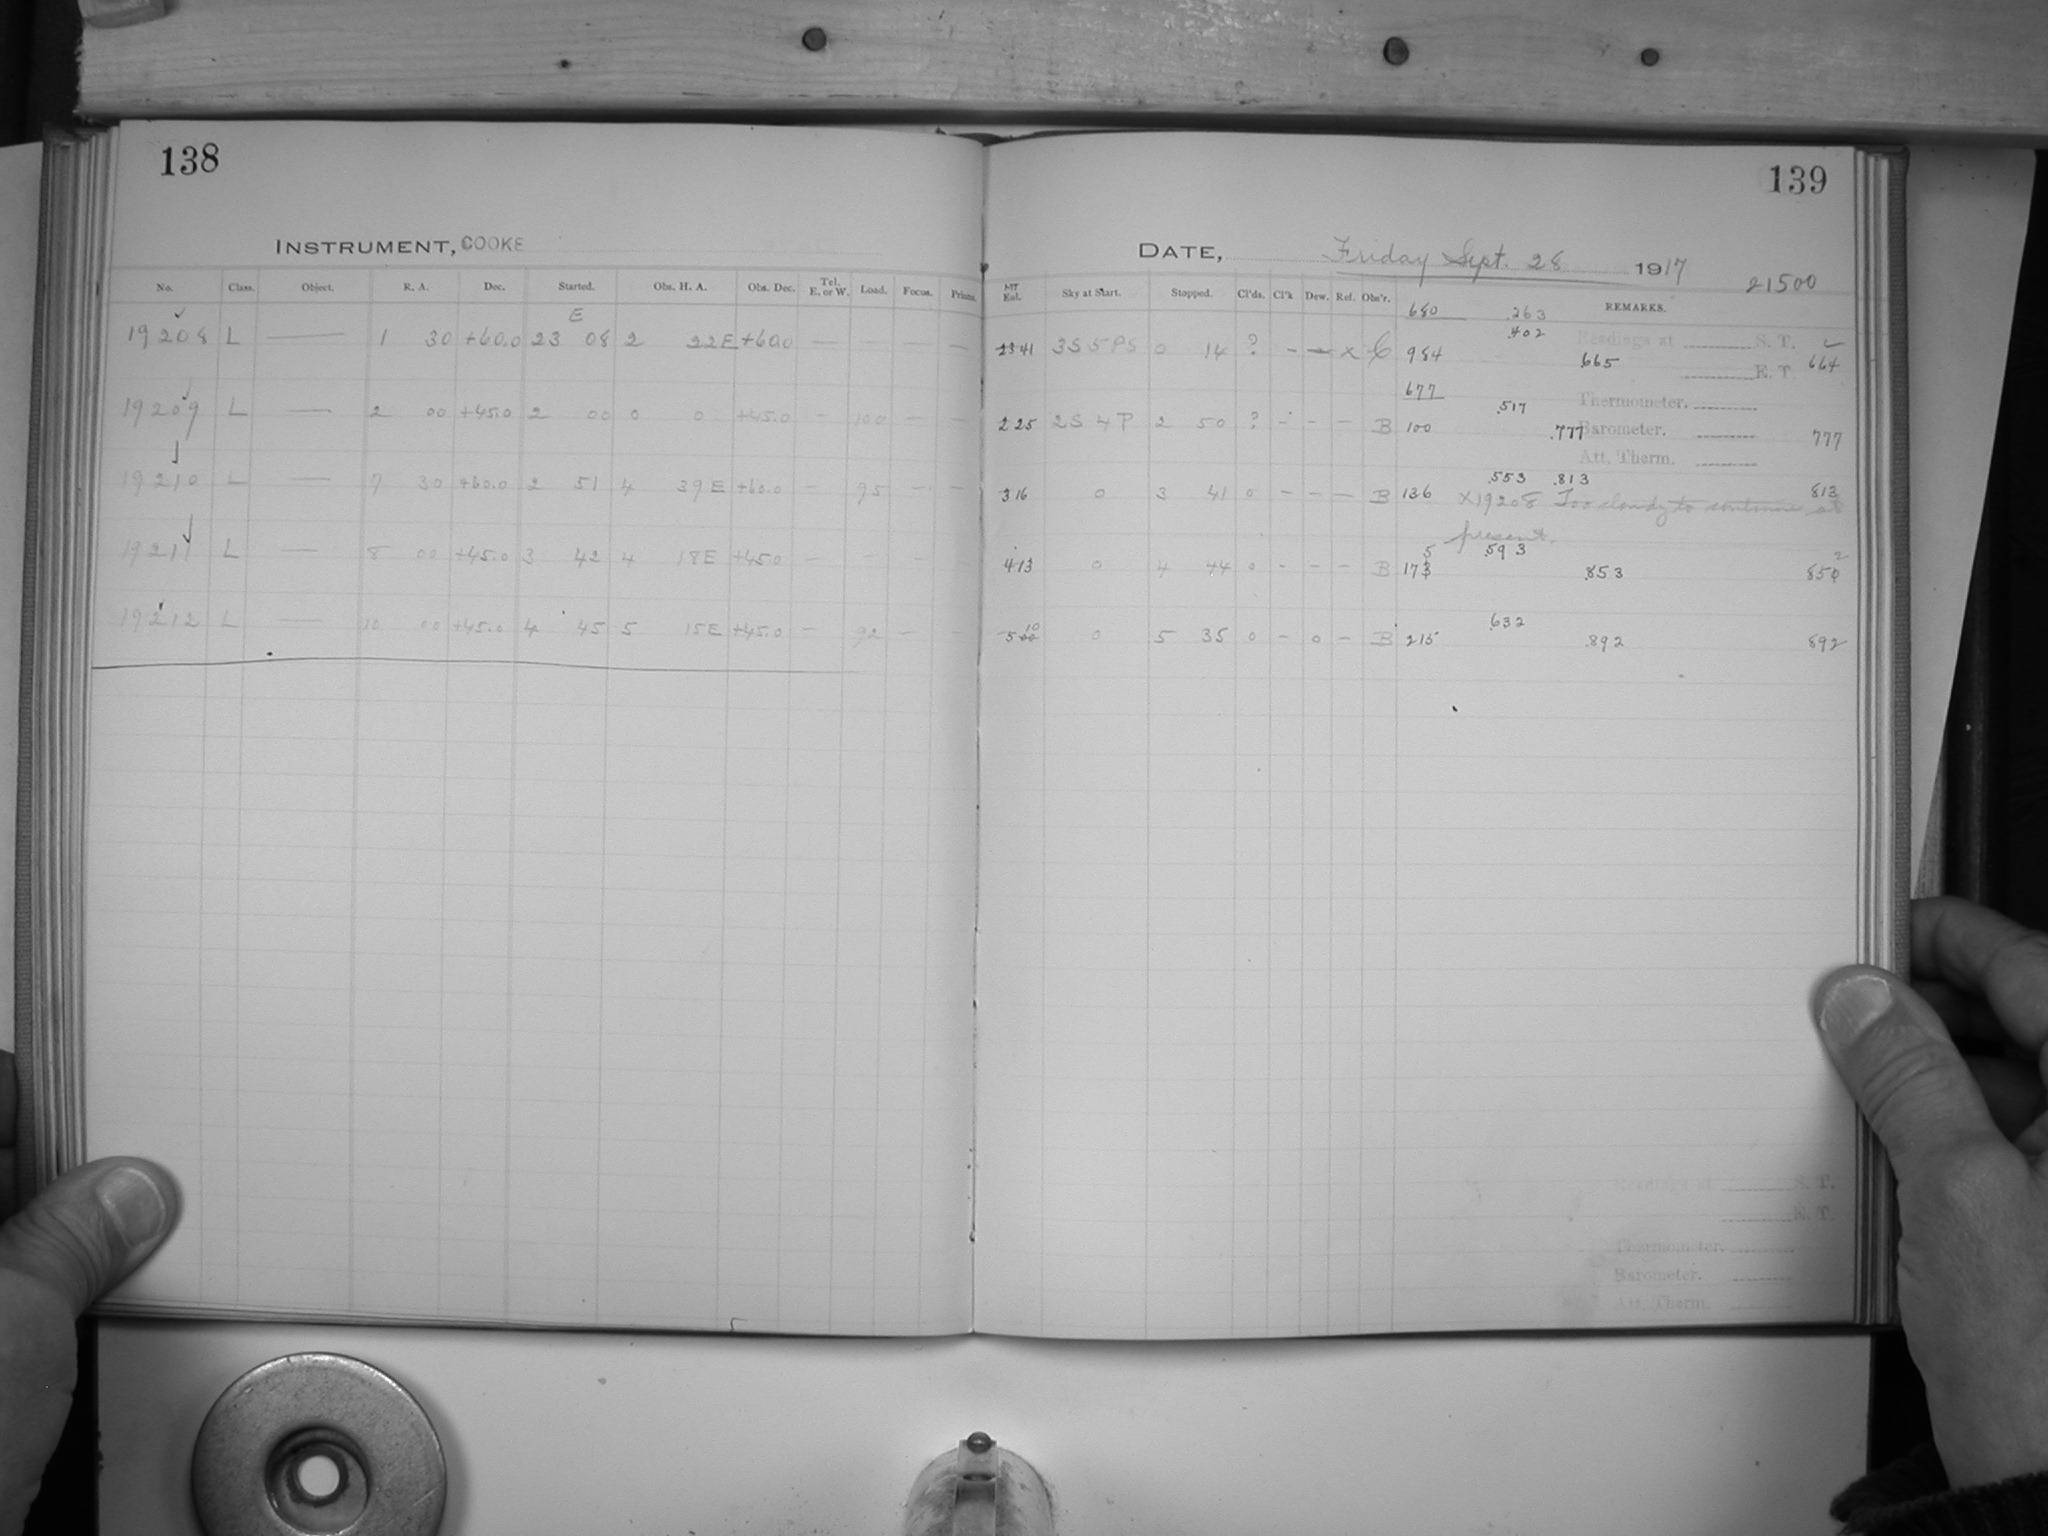 138
INSTRUMENT, COOKE
No. Class. Object. R. A. Dec. Started. Obs. H. A. Obs. Dec. Tel. E. or W. Load. Focus. Prisms.
E
19208 L — 1 30 +60.0 23 08 2 22E +60.0 — — — —
19209 L — 2 00 +45.0 2 00 0 0 +45.0 – 100 – –
19210 L — 7 30 +60.0 2 51 4 39E +60.0 – 95 – –
19211 L — 8 00 +45.0 3 42 4 18E +45.0 – – – –
19212 L — 10 00 +45.0 4 45 5 15E +45.0 – 92 – –
139
DATE, Friday Sept. 28 1917
21500
MT Eal. Sky at Start. Stopped. Cl'ds. Cl'k Dew. Ref. Obs'r. REMARKS.
680 .263
2341 3S5PS 0 14 ? – – x C 984 .402 .665 664
Readings at S. T.
E. T.
677
225 2S4P 2 50 ? – – – B 100 .517 .777 777
Thermometer.
Barometer.
Att. Therm.
.553 .813
316 0 3 41 0 – – – B 136 813
X19208 Too cloudy to continue at
present.
413 0 4 44 0 – – – B 173 5 .593 .853 850 2
10
500 0 5 35 0 – 0 – B 215 .632 .892 892
Readings at S. T.
E. T.
Thermometer.
Barometer.
Att. Therm.